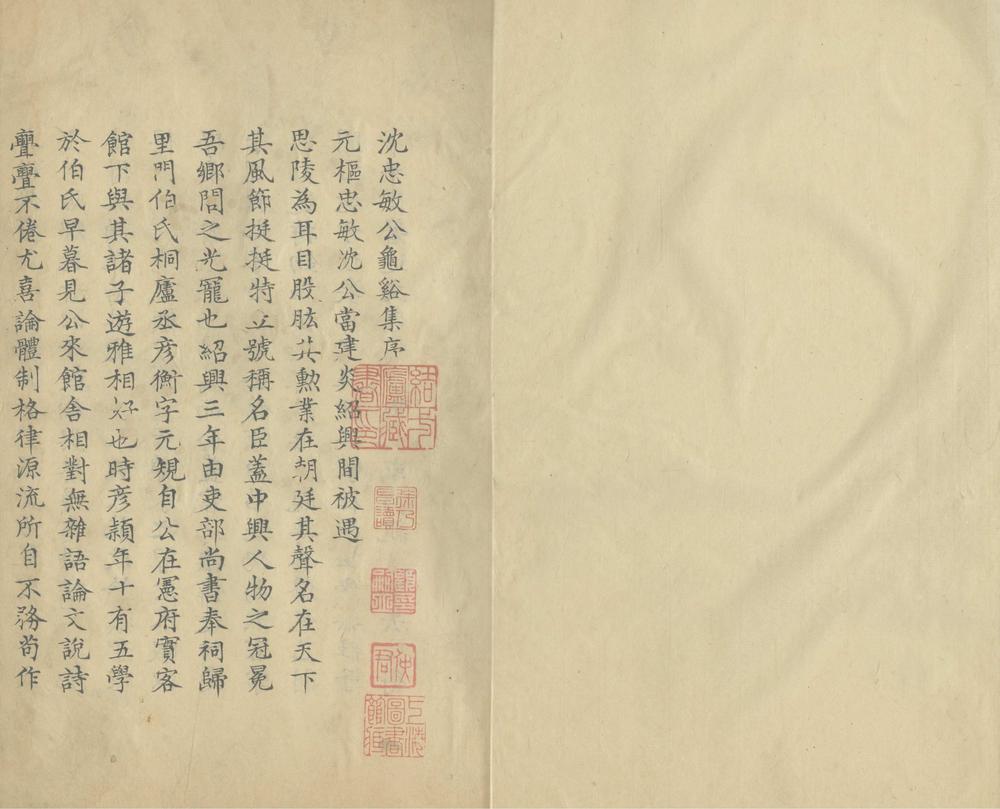 沈忠敏公龜谿集序
元樞忠敏沈公當建炎紹興間被遇
思陵為耳目股肱其勲業在朝廷其聲名在天下
其風節挺挺特立號稱名臣蓋中興人物之冠冕
吾鄉閭之光寵也紹興三年由吏部尚書奉祠歸
里門伯氏桐廬丞彦衡字元規自公在憲府賓客
館下與其諸子遊雅相好也時彦穎年十有五學
於伯氏早暮見公來館舍相對無雜語論文說詩
亹亹不倦尤喜論體制格律源流所自不務茍作
上海圖書館藏